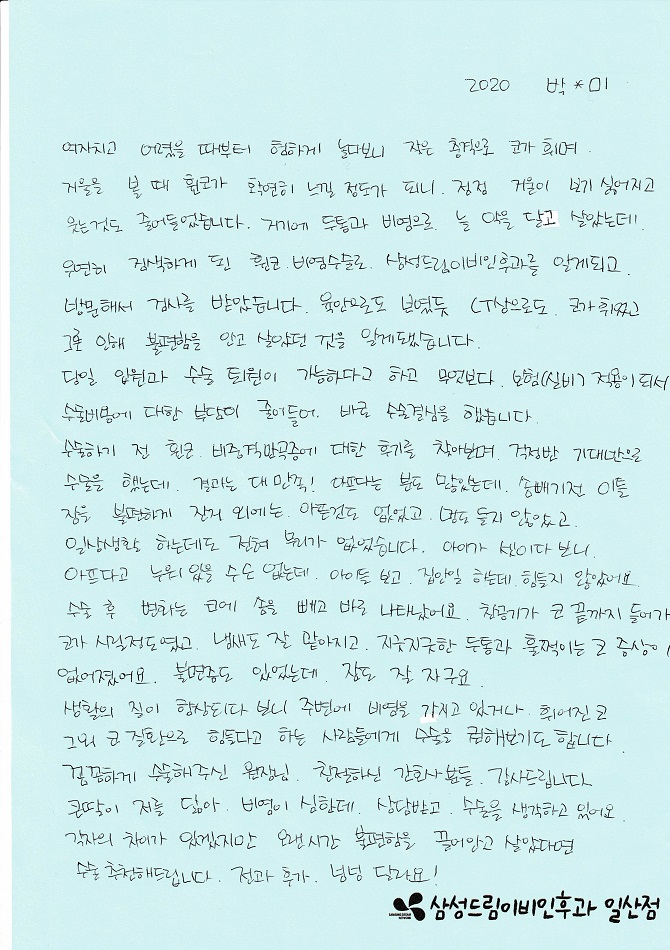 2020 박*미
여자치고 어렸을 때부터 험하게 놀다보니 작은 충격으로 코가 휘며.
거울을 볼 때 휜코가 확연히 느낄 정도가 되니. 점점 거울이 보기 싫어지고
웃는것도 줄어들었습니다. 거기에 두통과 비염으로 늘 약을 달고 살았는데.
우연히 검색하게 된 휜코.비염수술로. 삼성드림이비인후과를 알게되고.
방문해서 검사를 받았습니다. 육안으로도 보였듯 CT상으로도. 코가 휘었고
그로 인해 불편함을 안고 살았던 것을 알게됐습니다.
당일 입원과 수술 퇴원이 가능하다고 하고 무엇보다. 보험(실비)적용이 되서
수술비용에 대한 부담이 줄어들어. 바로 수술결심을 했습니다.
수술하기 전 휜코. 비중격만곡증에 대한 후기를 찾아보며. 걱정반 기대반으로
수술을 했는데. 결과는 대만족! 아프다는 분도 많았는데. 솜빼기전 이틀
잠을 불편하게 잔거 외에는. 아픈건도 없었고. 멍도 들지 않았고.
일상생활 하는데도 전혀 무리가 없었습니다. 아이가 셋이다 보니.
아프다고 누워있을 수도 없는데. 아이들 보고. 집안일 하는데. 힘들지 않았어요
수술 후 변화는 코에 솜을 빼고 바로 나타났어요. 찬공기가 코 끝까지 들어가
코가 시릴정도였고. 냄새도 잘 맡아지고. 지긋지긋한 두통과 훌쩍이는 코 증상이
없어졌어요. 불면증도 있었는데. 잠도 잘 자구요.
생활의 질이 향상되다 보니 주변에 비염을 가지고 있거나. 휘어진 코
그외 코 질환으로 힘들다고 하는 사람들에게 수술을 권해보기도 합니다.
꼼꼼하게 수술해주신 원장님. 친절하신 간호사분들. 감사드립니다.
큰딸이 저를 닮아. 비염이 심한데. 상담받고. 수술을 생각하고 있어요.
각자의 차이가 있겠지만 오랜시간 불편함을 끌어안고 살았다면
수술 추천해드립니다. 전과 후가. 넘넘 달라요!
삼성드림이비인후과 일산점